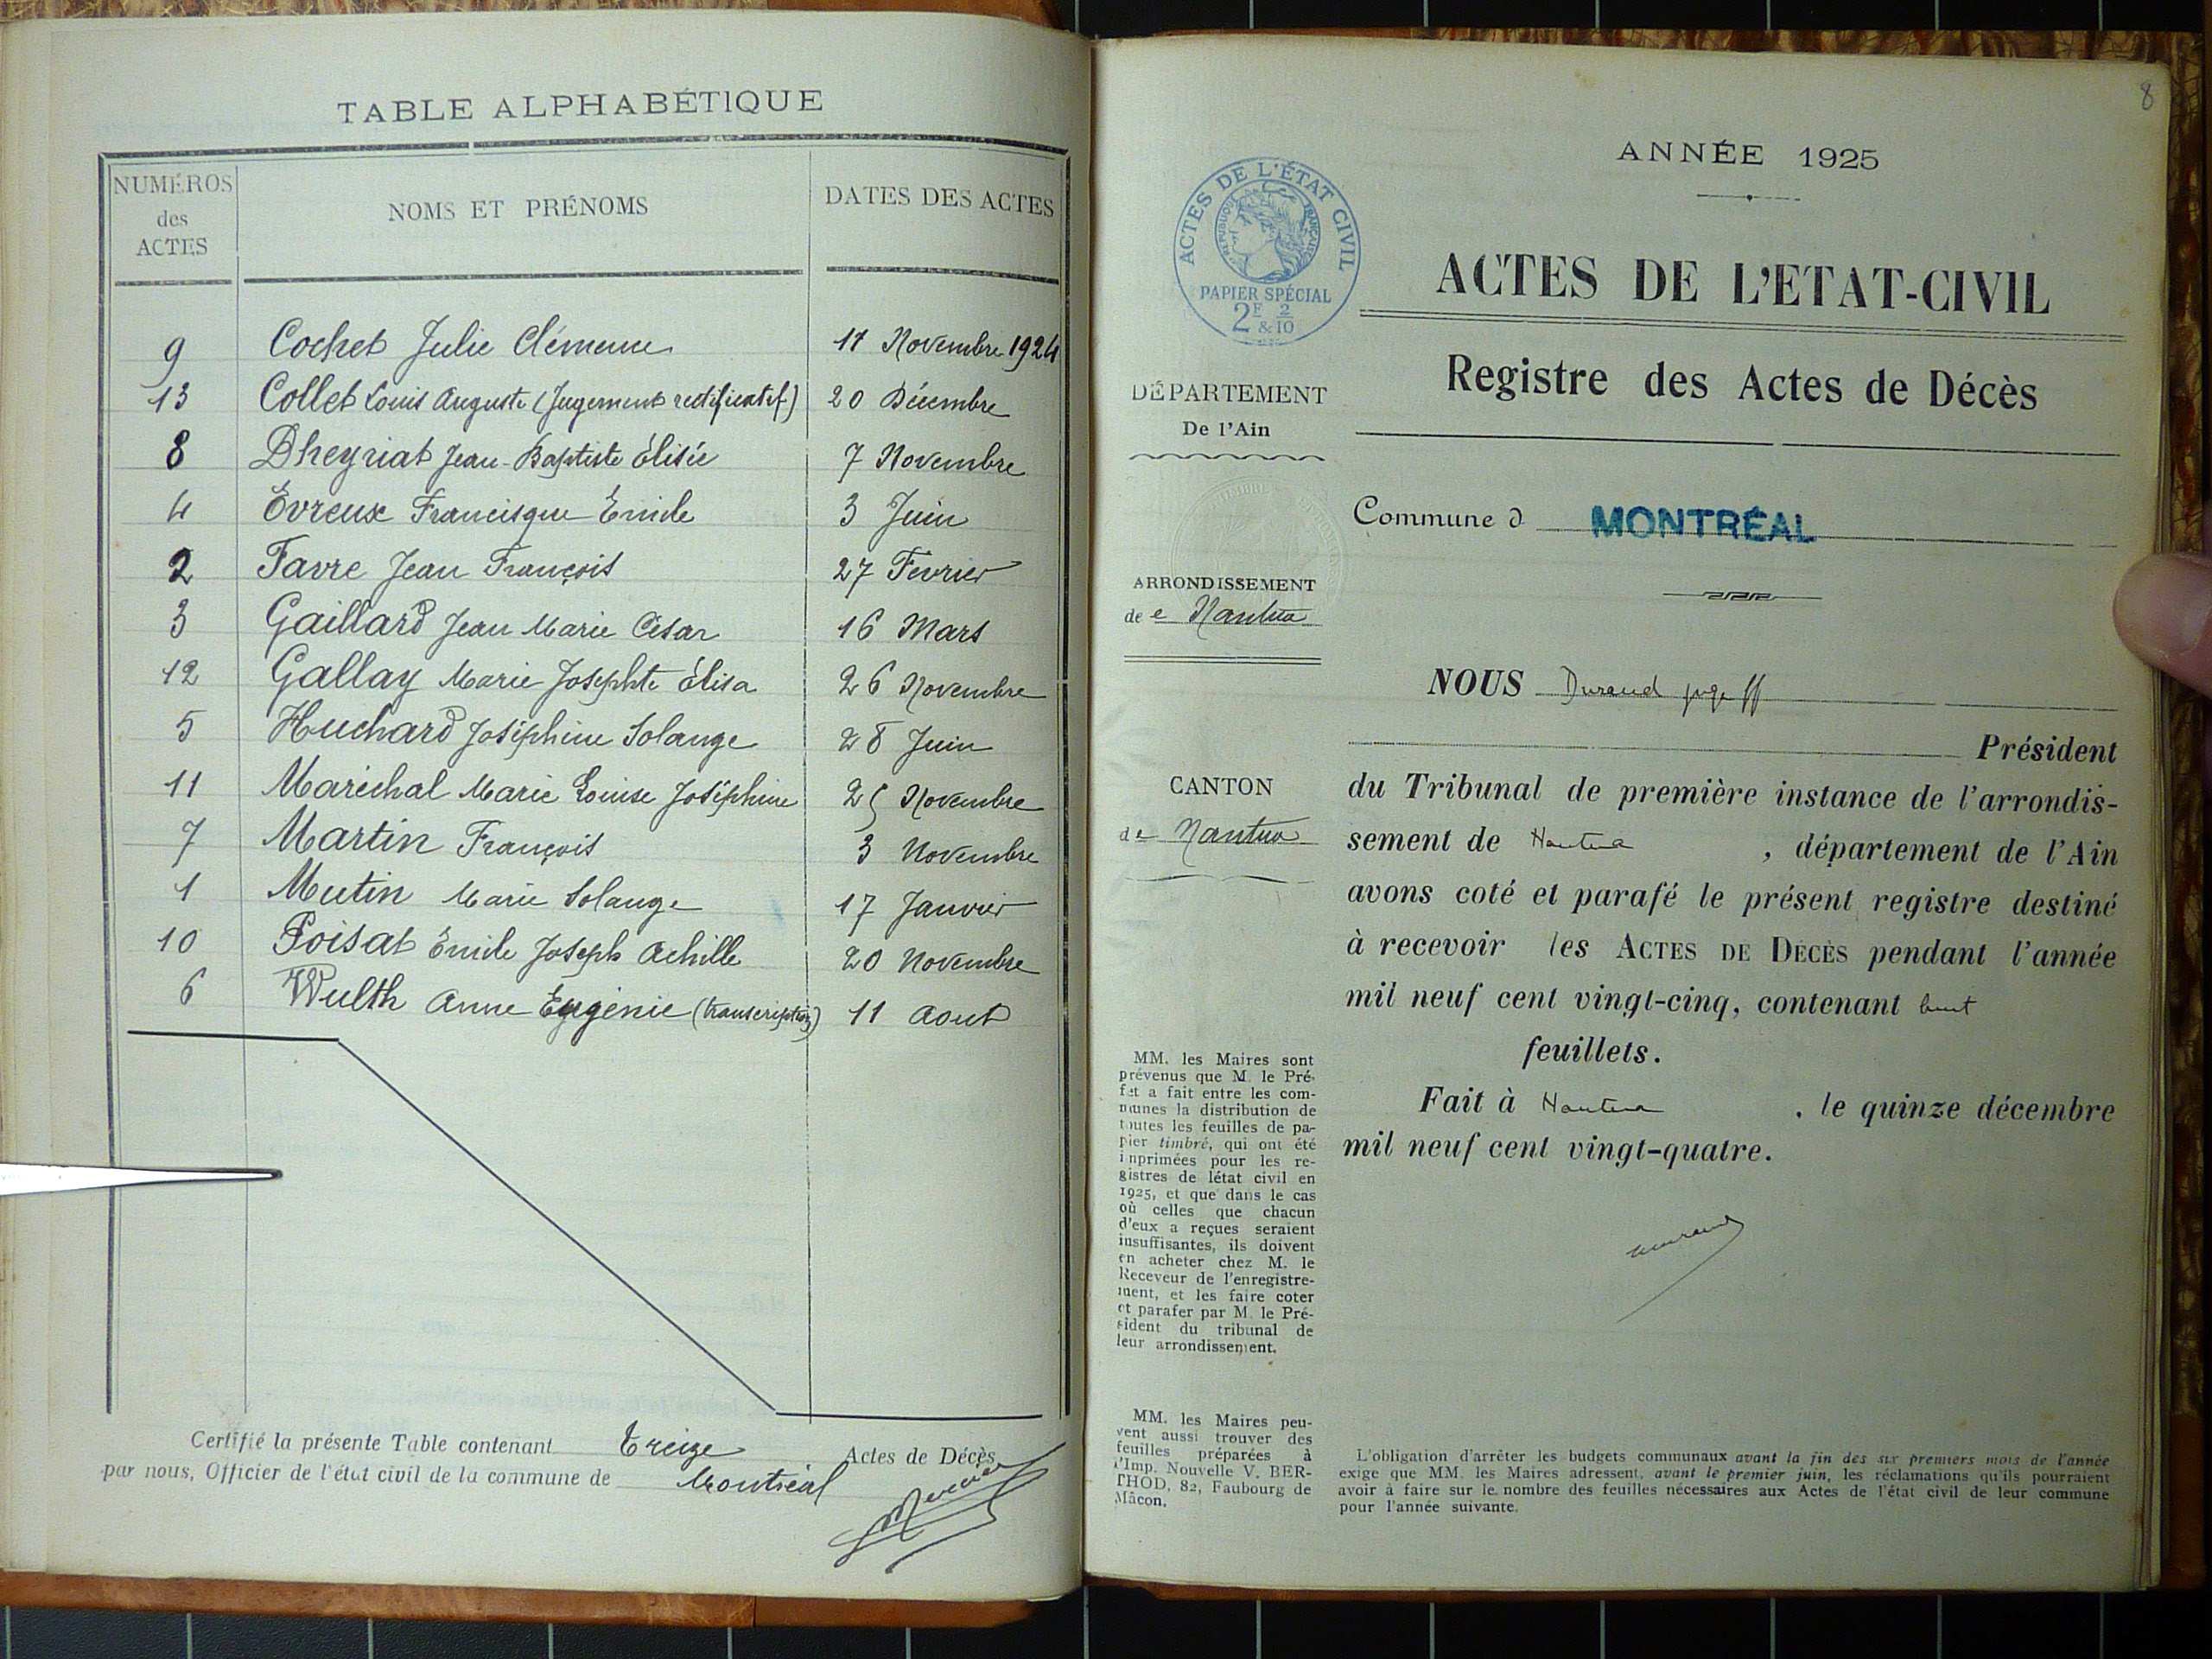 TABLE ALPHABÉTIQUE
NUMÉROS des ACTES
NOMS ET PRÉNOMS
DATES DES ACTES
9 Cochet Julie Clémence 17 Novembre 1924
13 Collet Louis Auguste (Jugement rectificatif) 20 Décembre
8 Dheyriat Jean-Baptiste Élisée 7 Novembre
4 Évreux Francisque Émile 3 Juin
2 Favre Jean François 27 Février
3 Gaillard Jean Marie César 16 Mars
12 Gallay Marie Josephte Élisa 26 Novembre
5 Huchard Joséphine Solange 28 Juin
11 Maréchal Marie Louise Joséphine 25 Novembre
7 Martin François 3 Novembre
1 Mutin Marie Solange 17 Janvier
10 Poisat Émile Joseph Achille 20 Novembre
6 Wulth Anne Eugénie (transcription) 11 Aout
Certifié la présente Table contenant treize Actes de Décès
par nous, Officier de l'état civil de la commune de Montréal
8
ANNÉE 1925
ACTES DE L'ÉTAT CIVIL
RÉPUBLIQUE FRANÇAISE
PAPIER SPÉCIAL
2F & 2/10
ACTES DE L'ETAT-CIVIL
Registre des Actes de Décès
DÉPARTEMENT
De l'Ain
Commune d MONTRÉAL
ARRONDISSEMENT
de e Nantua
CANTON
de Nantua
NOUS Durand juge ff
Président
du Tribunal de première instance de l'arrondis-
sement de Nantua, département de l'Ain
avons coté et parafé le présent registre destiné
à recevoir les ACTES DE DÉCÈS pendant l'année
mil neuf cent vingt-cinq, contenant huit
feuillets.
Fait à Nantua, le quinze décembre
mil neuf cent vingt-quatre.
MM. les Maires sont
prévenus que M. le Pré-
fet a fait entre les com-
munes la distribution de
toutes les feuilles de pa-
pier timbré, qui ont été
imprimées pour les re-
gistres de létat civil en
1925, et que dans le cas
où celles que chacun
d'eux a reçues seraient
insuffisantes, ils doivent
en acheter chez M. le
Receveur de l'enregistre-
ment, et les faire coter
et parafer par M. le Pré-
sident du tribunal de
leur arrondissement.
MM. les Maires peu-
vent aussi trouver des
feuilles préparées à
l'Imp. Nouvelle V. BER-
THOD, 82, Faubourg de
Mâcon.
L'obligation d'arrêter les budgets communaux avant la fin des six premiers mois de l'année
exige que MM. les Maires adressent, avant le premier juin, les réclamations qu'ils pourraient
avoir à faire sur le nombre des feuilles nécessaires aux Actes de l'état civil de leur commune
pour l'année suivante.